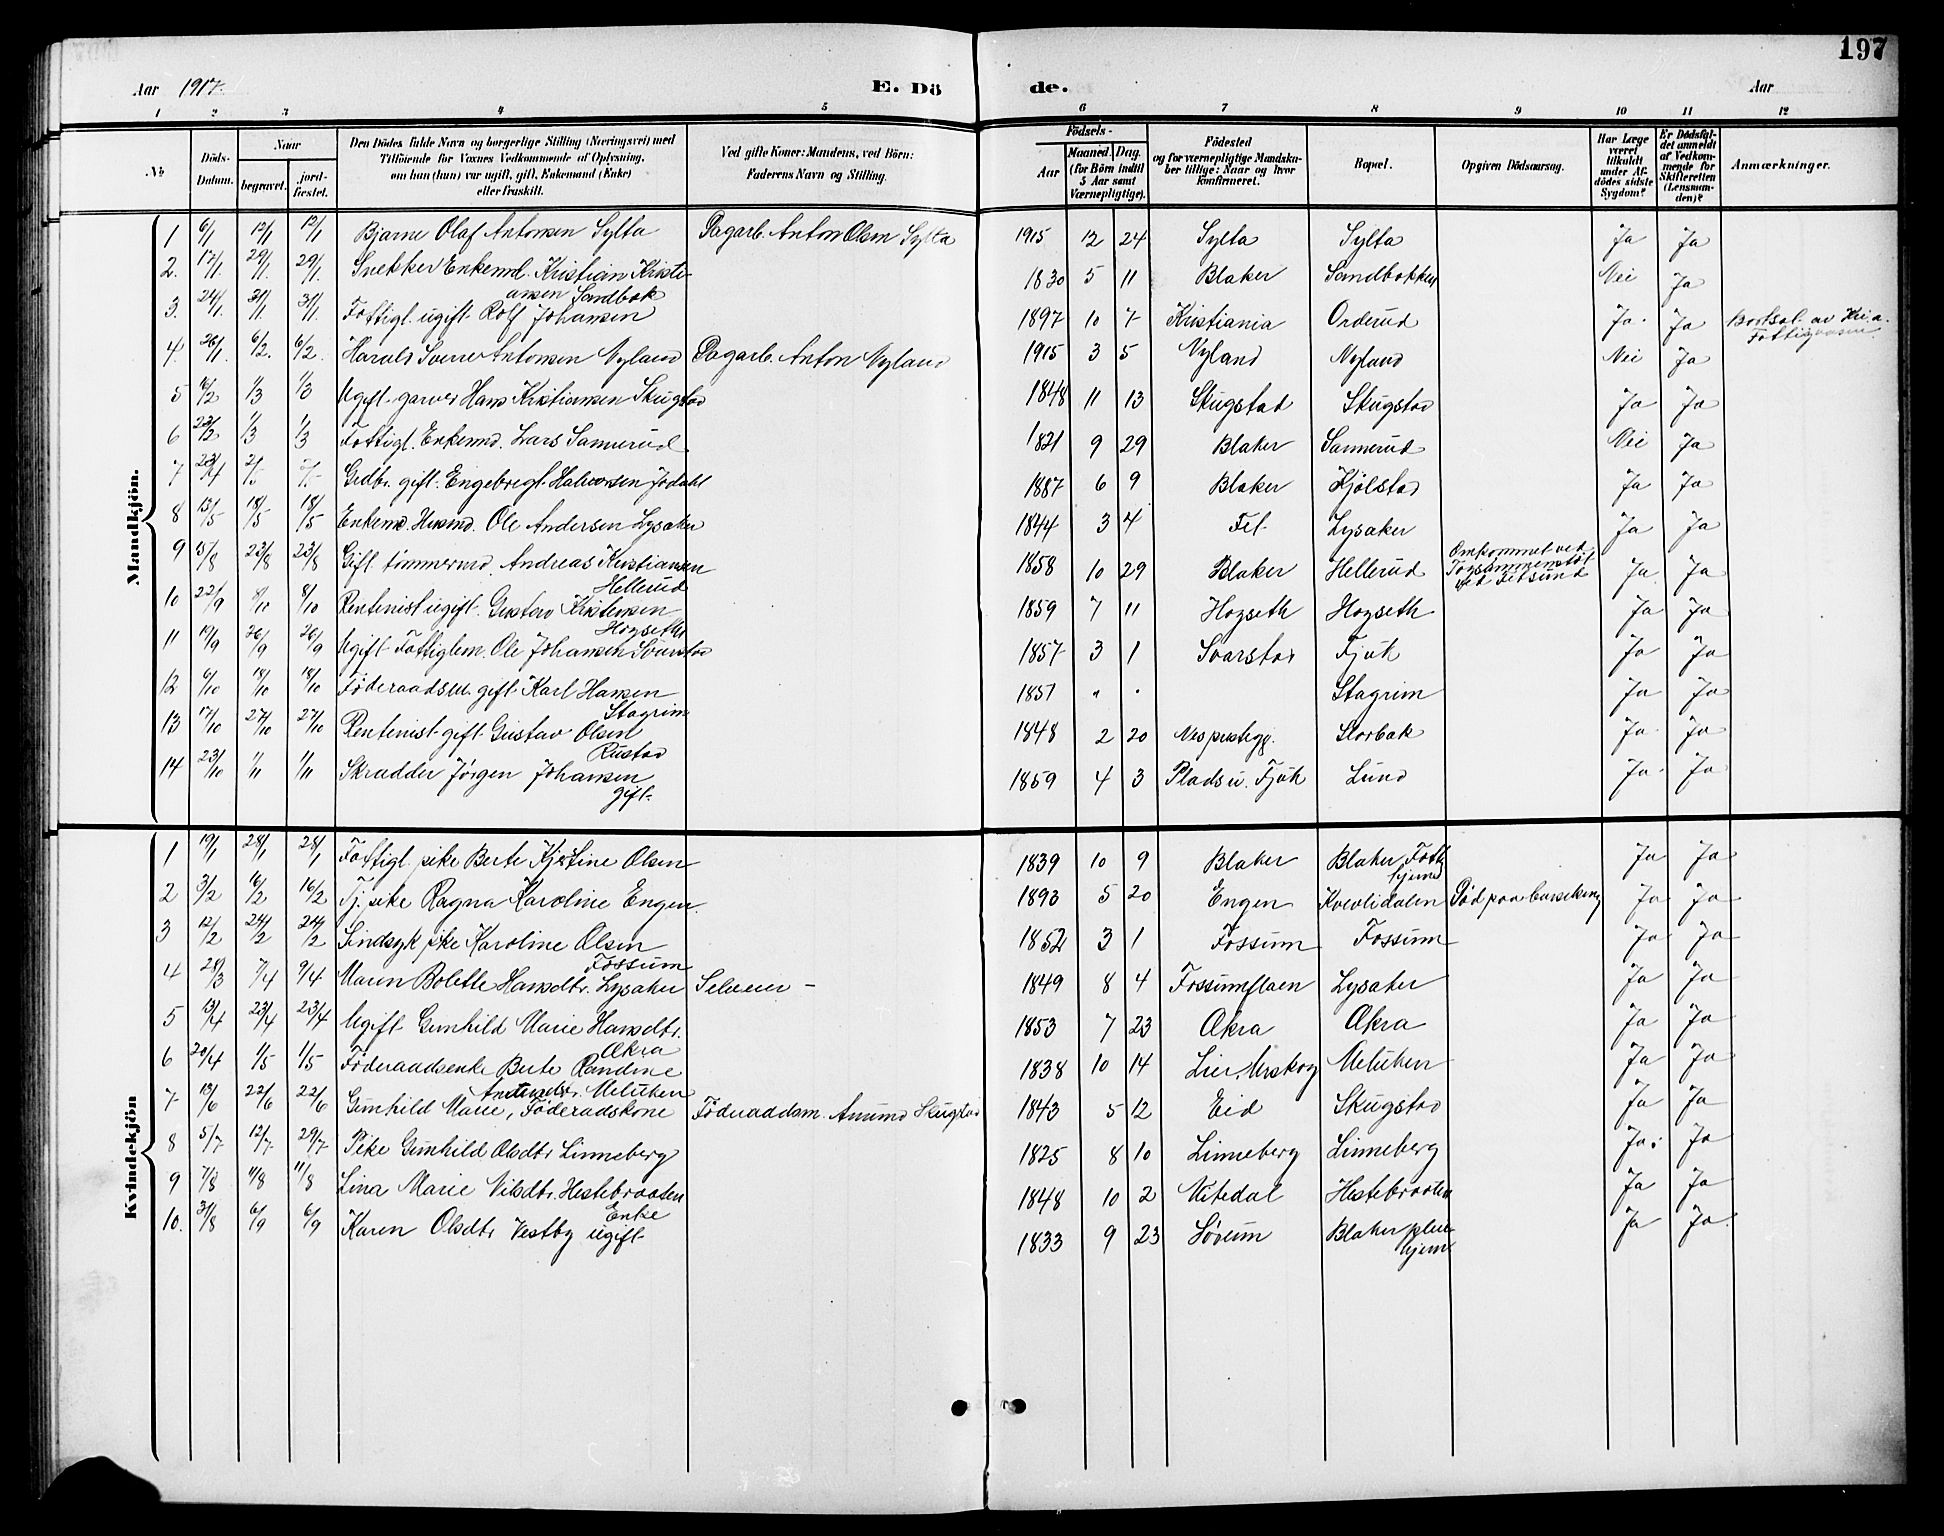 197
Aar 1917. E. Dö de. Aar
1 2 3 4 5 6 7 8 9 10 11 12
№ Döds-Datum. Naar begravet. jordfæstet. Den Dödes fulde Navn og borgerlige Stilling (Næringsvei) med Tilföiende for Voxnes Vedkommende af Oplysning, om han (hun) var ugift, gift, Enkemand (Enke) eller fraskilt. Ved gifte Koner: Mandens, ved Börn: Faderens Navn og Stilling. Födsels- Aar Maaned. Dag. (for Börn indtil 5 Aar samt Værnepligtige). Födested og for værnepligtige Mandskaber tillige: Naar og hvor konfirmeret. Bopæl. Opgiven Dödsaarsag. Har Læge været tilkaldt under Afdödes sidste Sygdom? Er Dödsfaldet anmeldt af Vedkommende for Skifteretten (Lensmanden)? Anmærkninger.
Mandkjön.
1 6/1 12/1 12/1 Bjarne Olaf Antonsen Sylta Dagarb. Anton Olsen Sylta 1915 12 24 Sylta Sylta Ja Ja
2. 17/1. 29/1. 29/1. Snekker Enkemd. Kristian Kristiansen Sandbak 1830 5 11 Blaker Sandbakken Nei Ja
3. 24/1. 31/1. 31/1. Fattigl. ugift Rolf Johansen 1897 10 7 Kristiania Onderud Ja. Ja Bortsat av Kr.a. Fattigvæsen
4. 26/1. 6/2. 6/2. Harald Sverre Antonsen Nyland Dagarb. Anton Nyland 1915 3 5 Nyland Nyland Nei Ja
5 16/2 1/3 1/3 Ugift garver Hans Kristiansen Skugstad 1848 11 13 Skugstad Skugstad Ja Ja
6 23/2 1/3 1/3 Fattigl. Enkemd. Lars Sannerud 1821 9 29 Blaker Sannerud Nei Ja
7 23/4 2/5 2/5 Grdbr. gift. Engebregt Halvorsen Jødahl 1887 6 9 Blaker Kjölstad Ja Ja
8 13/5 18/5 18/5 Enkemd. Husmd. Ole Andersen Lysaker 1844 3 4 Fet Lysaker Ja Ja
9 15/8 23/8 23/8 Gift tömmermd. Andreas Kristiansen Hellerud 1858 10 29 Blaker Hellerud Omkommet ved Togsammenstöt ved Fetsund Ja Ja
10 22/9 8/10 8/10 Rentenist ugift. Gustav Kristensen Hogseth 1859 7 11 Hogseth Hogseth Ja Ja
11 19/9 26/9 26/9 Ugift Fattiglem. Ole Johansen Svarstad 1857 3 1 Svarstad Fjuk Ja Ja
12 6/10 18/10 18/10 Föderaadsm. gift Karl Hansen Stagrim 1851 " . Stagrim Ja Ja
13 17/10 27/10 27/10 Rentenist gift Gustav Olsen Rustad 1848 2 20 Nes prestegj. Storbak Ja Ja
14 23/10 1/11 1/11 Skradder Jörgen Johansen gift. 1859 4 3 Plads u. Fjuk Lund Ja Ja
Kvindekjön
1 19/1 28/1 28/1 Fattigl. pike Berte Kjestine Olsen 1839 10 9 Blaker Blaker Fattighjem Ja Ja
2 3/2 16/2 16/2 Tj. pike Ragna Karoline Engen. 1893 5 20 Engen Kvevlidalen Död paa barselseng Ja Ja
3 12/2 24/2 24/2 Sindsyk pike Karoline Olsen Fossum 1852 3 1 Fossum Fossum Ja Ja
4 28/3 7/4 9/4 Maren Bolette Hansdtr. Lysaker Selveier - 1849 8 4 Fossumflaen Lysaker Ja Ja
5 13/4 23/4 23/4 Ugift Gunhild Marie Hansdtr. Økra 1853 7 23 Økra Økra Ja Ja
6 20/4 1/5 1/5 Föderaadsenke Berte Randine Meluken 1838 10 14 Lier. Urskog Meluken Ja Ja
7 13/6 22/6 22/6 Gunhild Marie, Föderadskone Föderaadsm. Amund Skugstad 1843 5 12 Eid Skugstad Ja Ja
8 5/7 12/7 29/7 Pike Gunhild Olsdtr Linneberg 1825 8 10 Linneberg Linneberg Ja. Ja
9 7/8 11/8 11/8 Lina Marie Nilsdtr. Hestebraaten Enke 1848 10 2 Nitedal Hestebraaten Ja Ja
10. 31/8 6/9 6/9 Karen Olsdtr Vestby ugift 1833 9 23 Sörum Blaker pleiehjem Ja Ja.